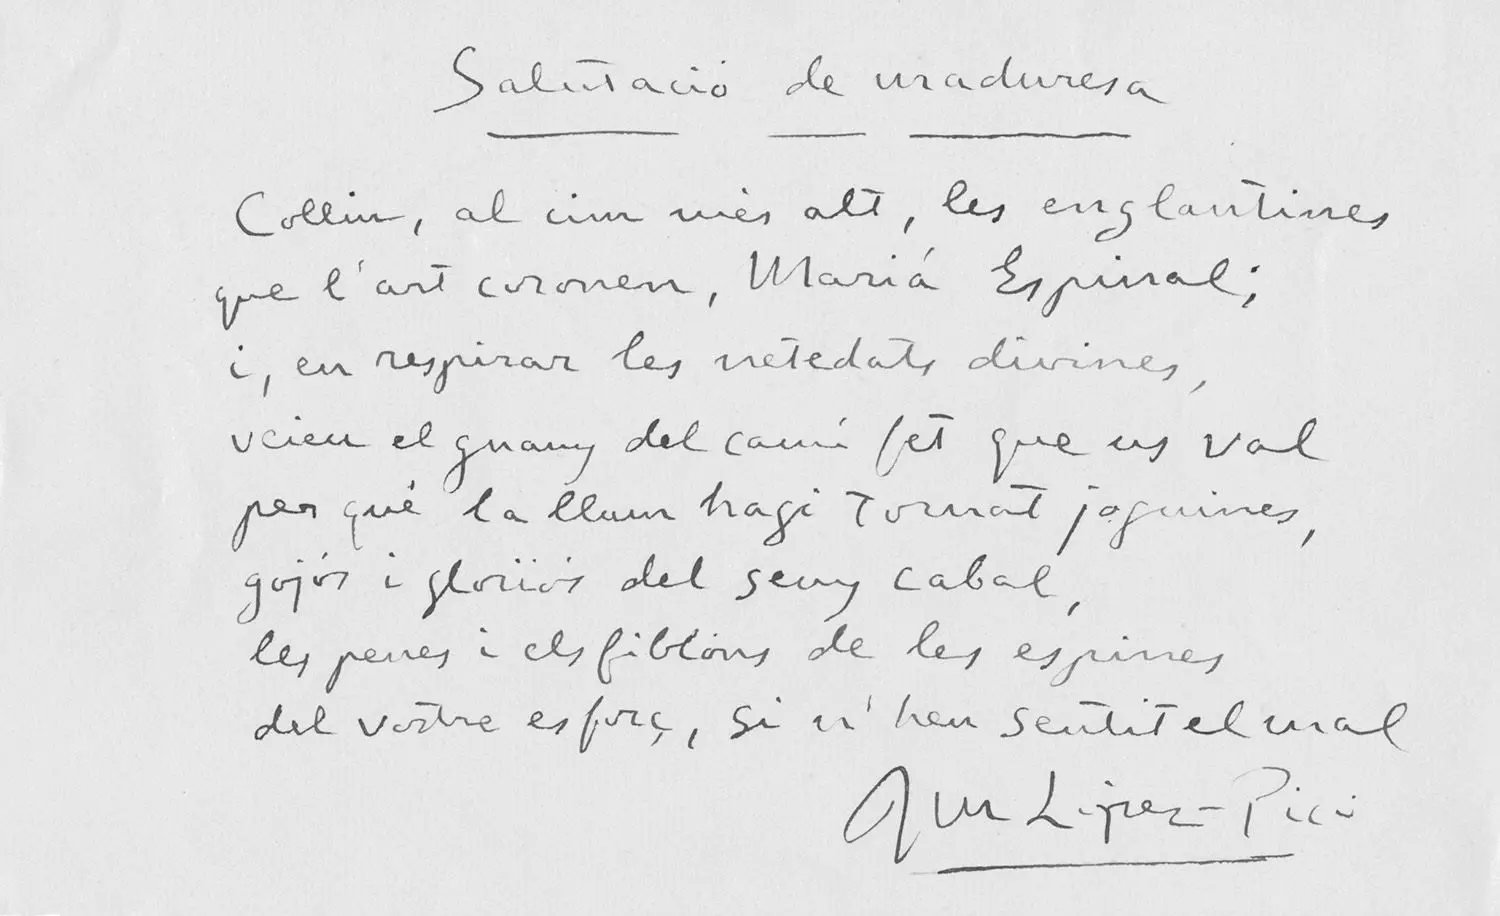 Salutació de maduresa
Colliu, al cim més alt, les englantines
que l'art coronen, Marià Espinal;
i, en respirar les netedats divines,
veieu el guany del camí fet que us val
per què la llum hagi tornat joguines,
gojós i gloriïós del seny cabal,
les penes i els fiblóns de les espines
del vostre esforç, si n'heu sentit el mal
López-Picó